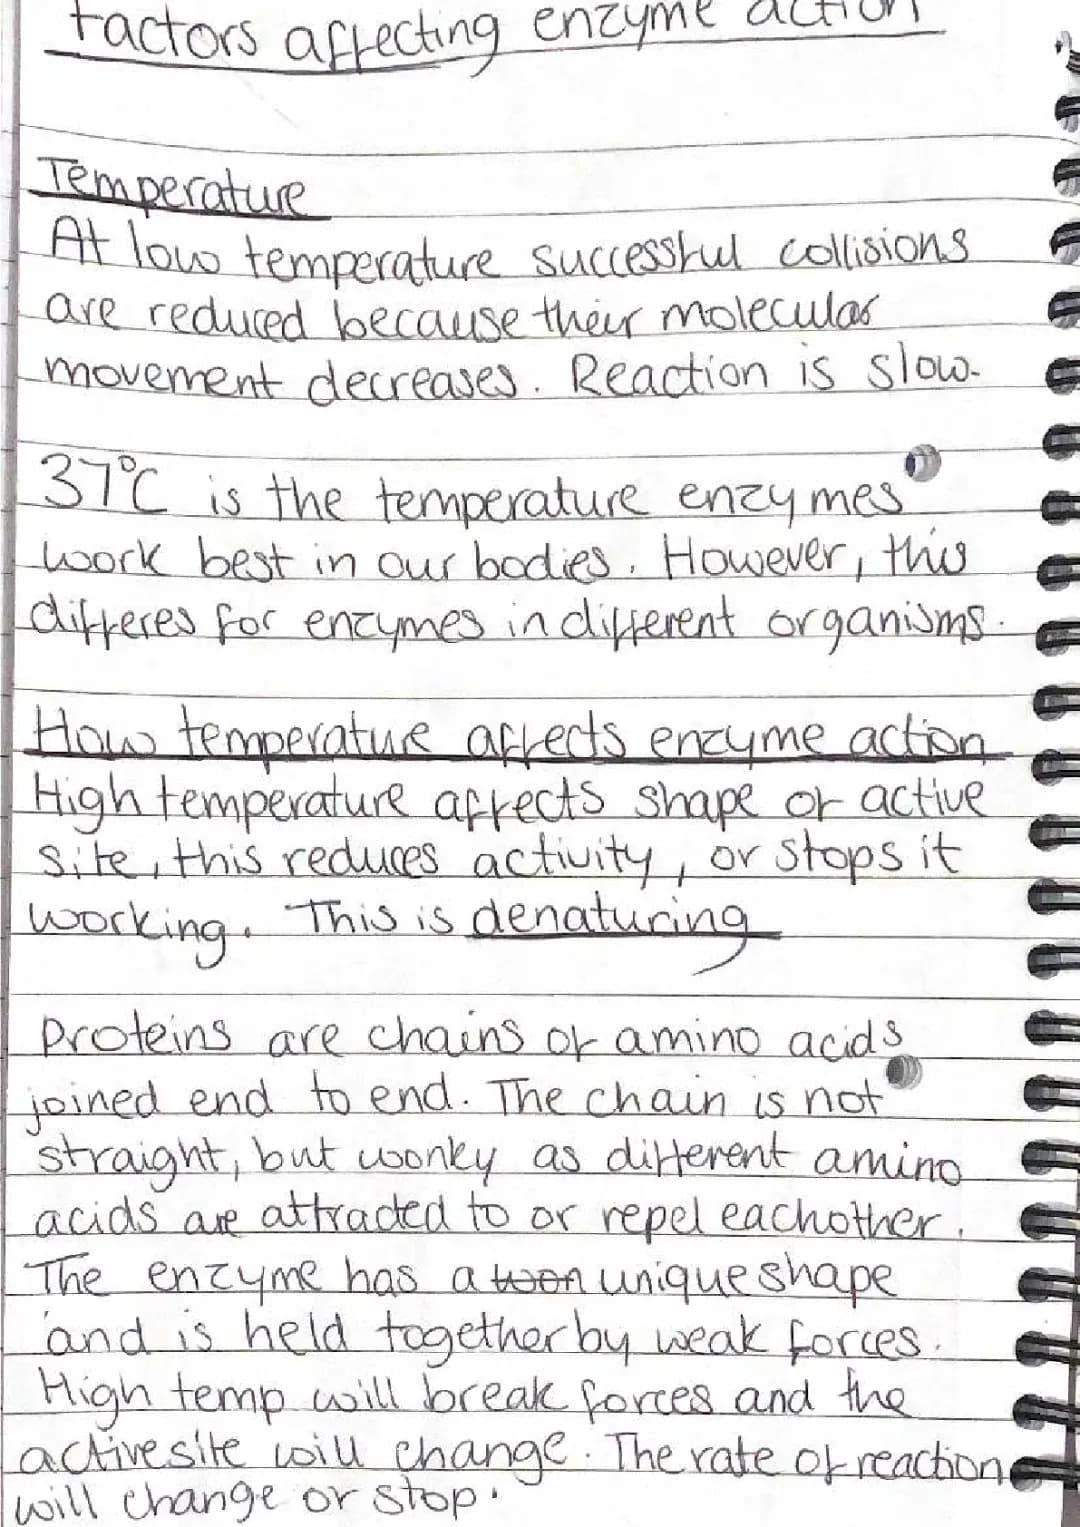 Factors affecting enzyme action
Temperature
At low temperature successful collisions
are reduced because their molecular
movement decreases. Reaction is slow.
37°C is the temperature enzymes
work best in our bodies. However, this
differes for enzymes in different organisms.
How temperature affects enzyme action
High temperature affects shape of active
site, this reduces activity, or stops it
working. This is denaturing
Proteins are chains of amino acids
joined end to end. The chain is not
straight, but wonky as different amino
acids are attracted to or repel eachother.
The enzyme has a unique shape
and is held together by weak forces.
High temp will break forces and the
active site will change. The rate of reaction
will change or stop.